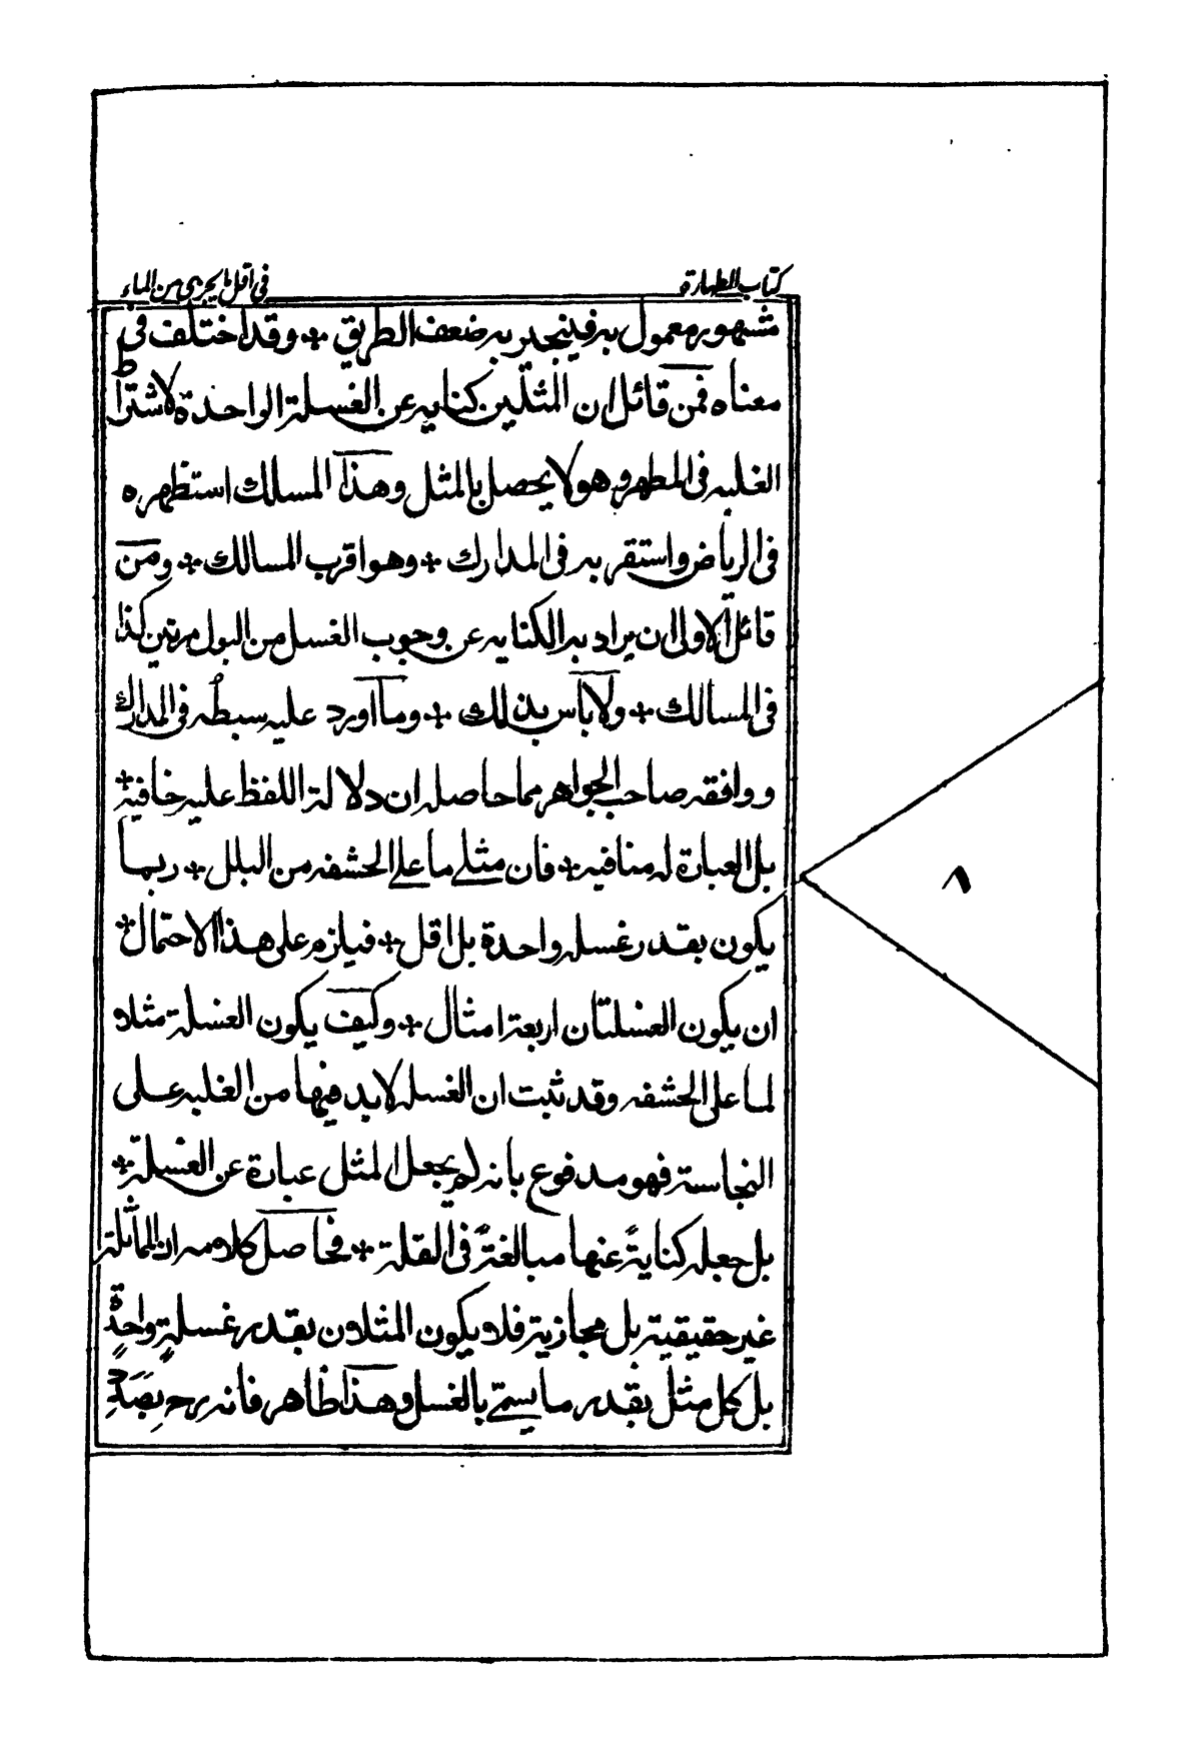 كتاب الطهارة
فى اقل ما يجزى من الماء
مشهور معمول به فينجبر به ضعف الطريق + وقد اختلف فى
معناه فمن قائل ان المثلين كناية عن الغسلة الواحدة لاشتراط
الغلبه فى المطهر وهو لا يحصل بالمثل وهذا المسالك استظهره
فى الرياض واستقر به فى المدارك + وهو اقرب المسالك + ومن
قائل الاولى ان يراد به الكنايه عن وجوب الغسل من البول مرتين كذا
فى المسالك + ولا بأس بذلك + وما اورد عليه سبطه فى المدارك
ووافقه صاحب الجواهر مما حاصله ان دلالة اللفظ عليه خافية +
بل العبارة له منافيه + فان مثلى ما على الحشفه من البلل + ربما
يكون بقدر غسله واحدة بل اقل + فيلزم على هذا الاحتمال +
ان يكون الغسلتان اربعة امثال + وكيف يكون الغسلة مثلا
لما على الحشفه وقد ثبت ان الغسله لا بد فيها من الغلبه على
النجاسة فهو مدفوع بانه لم يجعل المثل عبارة عن الغسلة +
بل جعله كنايةً عنها مبالغةً فى القلة + فحاصل كلامه ان المماثلة
غير حقيقية بل مجازية فلا يكون المثلان بقدر غسلةٍ واحدةٍ
بل كل مثل بقدر ما يسمّى بالغسل وهذا ظاهر فانه رح بصدد
٨